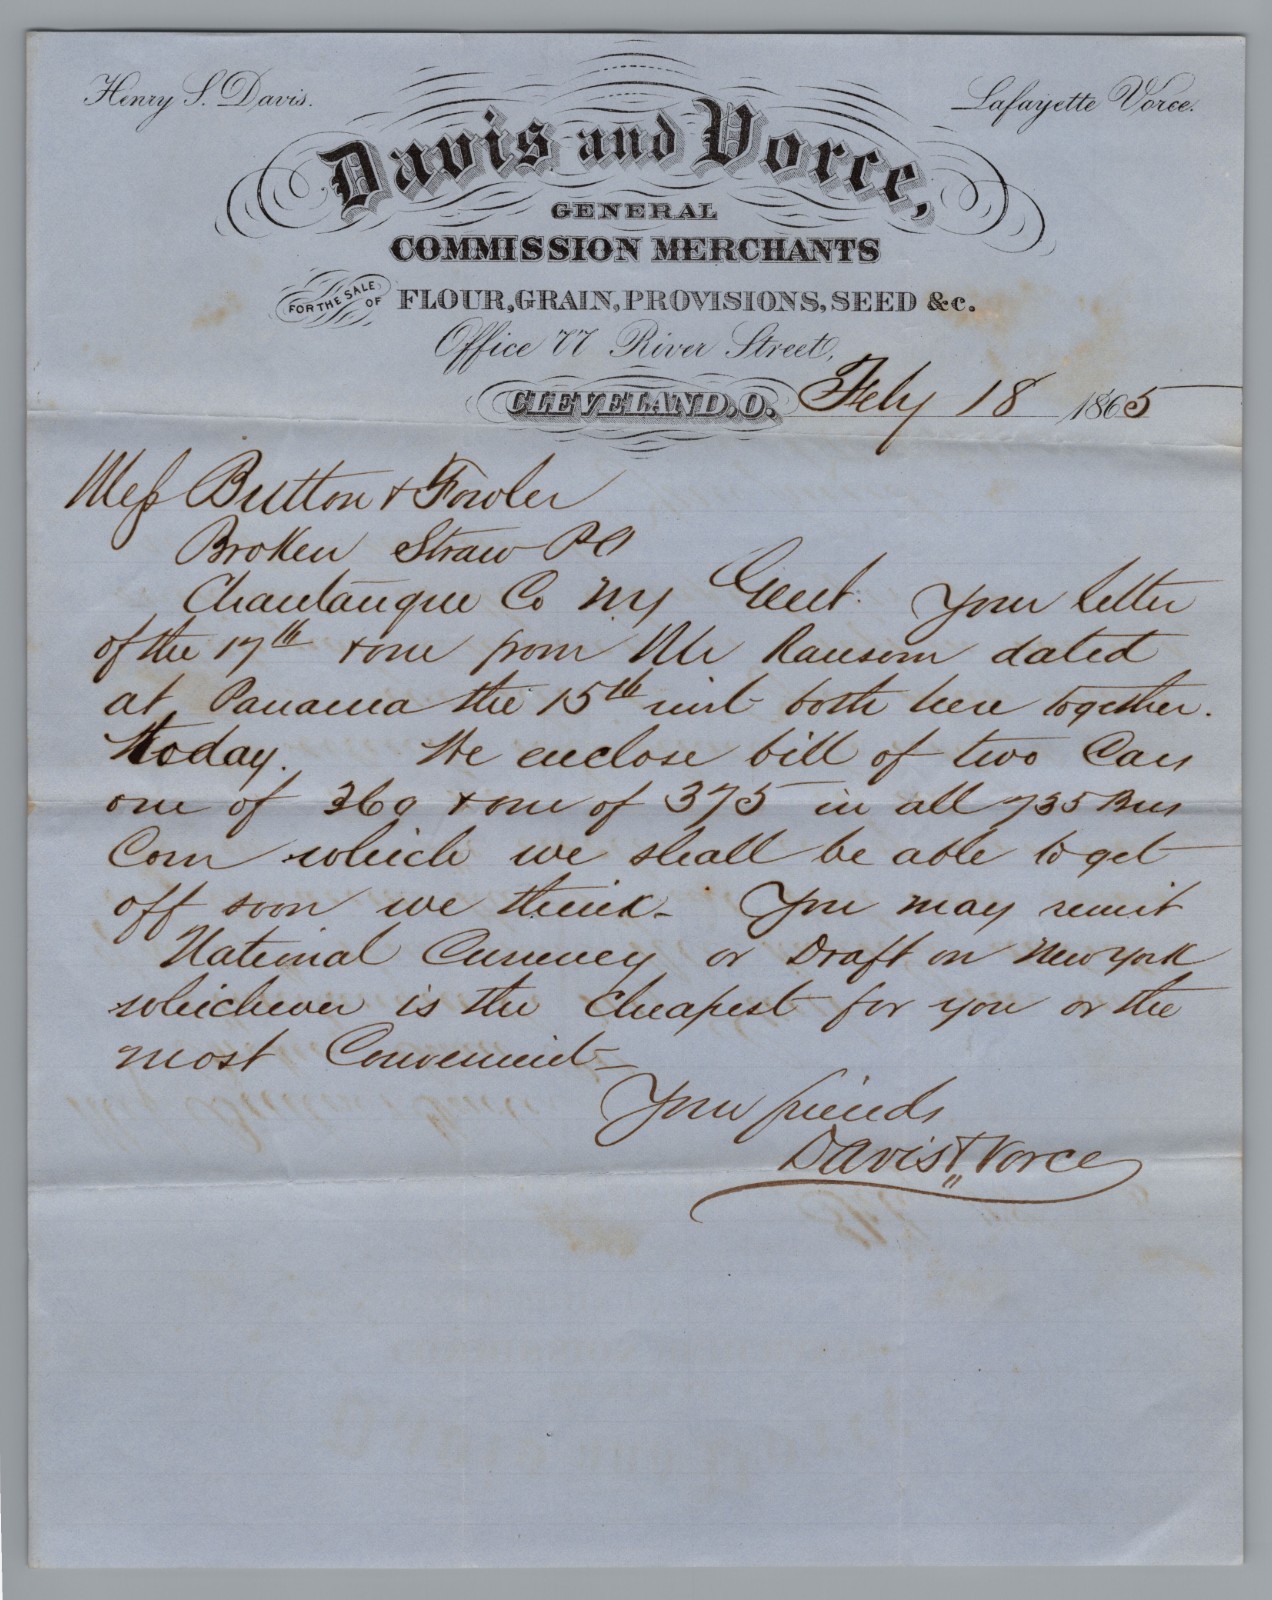 Henry S. Davis.
Lafayette Vorce.
Davis and Vorce,
GENERAL
COMMISSION MERCHANTS
FOR THE SALE OF FLOUR, GRAIN, PROVISIONS, SEED &c.
Office 77 River Street,
CLEVELAND, O. Feby 18 1865
Mess Button & Fowler
Broken Straw PO
Chautauque Co NY Gent. Your letter
of the 17th & one from Mr Ransom dated
at Panama the 15th inst both here together.
today. We enclose bill of two Cars
one of 360 & one of 375 in all 735 Bus
Corn which we shall be able to get
off soon we think. You may remit
National Currency or Draft on New York
whichever is the Cheapest for you or the
most Convenient
Your friends
Davis & Vorce